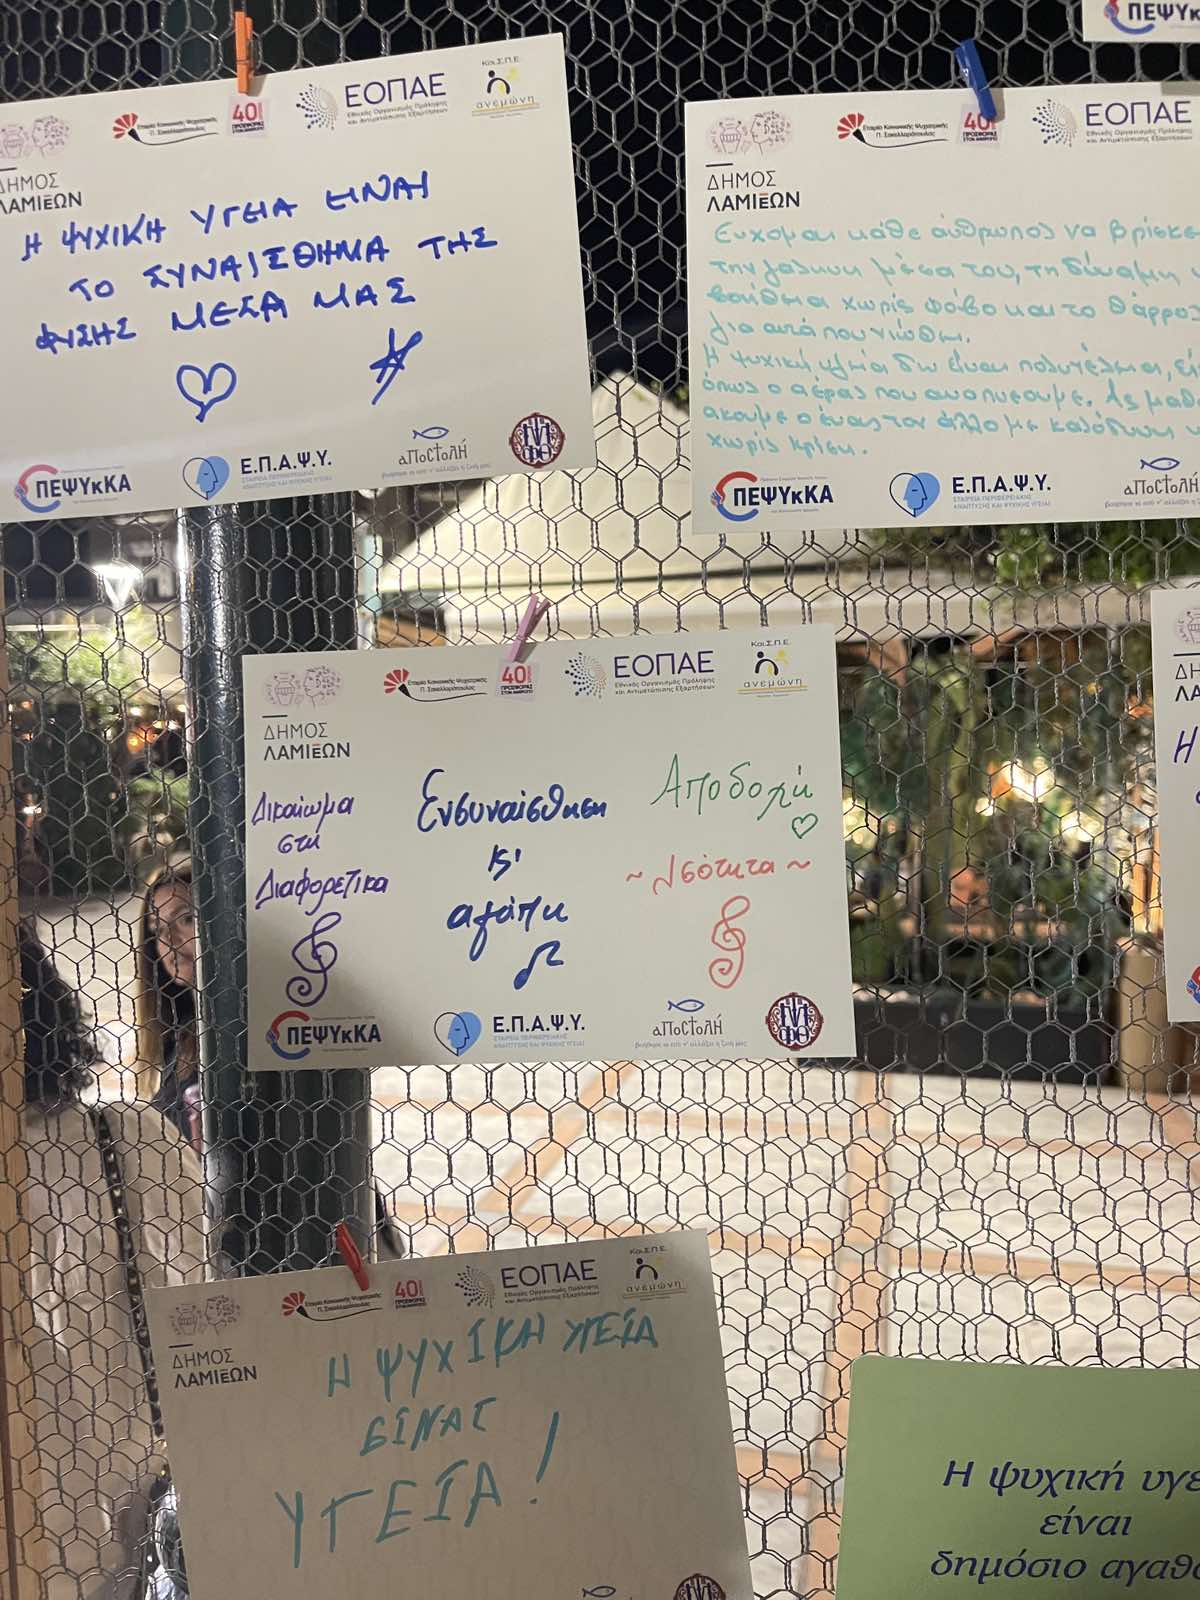 ΠΕΨΥκ
40
ΠΡΟΣΦΟΡΑΣ
ΣΤΟΝ ΑΝΘΡΩΠΟ
Εταιρία Κοινωνικής Ψυχιατρικής
Π. Σακελλαρόπουλος
ΕΟΠΑΕ
Εθνικός Οργανισμός Πρόληψης
και Αντιμετώπισης Εξαρτήσεων
Κοι.Σ.Π.Ε.
ανεμώνη
ΔΗΜΟΣ
ΛΑΜΙΕΩΝ
Η ΨΥΧΙΚΗ ΥΓΕΙΑ ΕΙΝΑΙ
ΤΟ ΣΥΝΑΙΣΘΗΜΑ ΤΗΣ
ΦΥΣΗΣ ΜΕΣΑ ΜΑΣ
ΠΕΨΥκΚΑ
Ε.Π.Α.Ψ.Υ.
ΕΤΑΙΡΕΙΑ ΠΕΡΙΦΕΡΕΙΑΚΗΣ
ΑΝΑΠΤΥΞΗΣ ΚΑΙ ΨΥΧΙΚΗΣ ΥΓΕΙΑΣ
αΠΟCΤΟΛΗ
βοήθησε κι εσύ ν' αλλάξει η ζωή μας
Εταιρία Κοινωνικής Ψυχιατρικής
Π. Σακελλαρόπουλος
40
ΠΡΟΣΦΟΡΑΣ
ΣΤΟΝ ΑΝΘΡΩΠΟ
ΕΟΠΑΕ
Εθνικός Οργανισμός Πρόληψης
και Αντιμετώπισης Εξαρτήσεων
ΔΗΜΟΣ
ΛΑΜΙΕΩΝ
Εύχομαι κάθε άνθρωπος να βρίσκε
την γαλήνη μέσα του, τη δύναμη
βοήθεια χωρίς φόβο και το θάρρος
για αυτά που νιώθει.
Η ψυχική υγεία δεν είναι πολυτέλεια, εί
όπως ο αέρας που αναπνέουμε. Ας μαθ
ακούμε ο ένας τον άλλο με καλοσύνη
χωρίς κρίση.
ΠΕΨΥκΚΑ
Ε.Π.Α.Ψ.Υ.
ΕΤΑΙΡΕΙΑ ΠΕΡΙΦΕΡΕΙΑΚΗΣ
ΑΝΑΠΤΥΞΗΣ ΚΑΙ ΨΥΧΙΚΗΣ ΥΓΕΙΑΣ
αΠΟCΤΟΛΗ
Εταιρία Κοινωνικής Ψυχιατρικής
Π. Σακελλαρόπουλος
40
ΠΡΟΣΦΟΡΑΣ
ΣΤΟΝ ΑΝΘΡΩΠΟ
ΕΟΠΑΕ
Εθνικός Οργανισμός Πρόληψης
και Αντιμετώπισης Εξαρτήσεων
Κοι.Σ.Π.Ε.
ανεμώνη
ΔΗΜΟΣ
ΛΑΜΙΕΩΝ
Δικαίωμα
στη
Διαφορετικα
Ενσυναίσθηση
κ'
αγάπη
Αποδοχή
~ Ισότητα ~
ΠΕΨΥκΚΑ
Ε.Π.Α.Ψ.Υ.
ΕΤΑΙΡΕΙΑ ΠΕΡΙΦΕΡΕΙΑΚΗΣ
ΑΝΑΠΤΥΞΗΣ ΚΑΙ ΨΥΧΙΚΗΣ ΥΓΕΙΑΣ
αΠΟCΤΟΛΗ
βοήθησε κι εσύ ν' αλλάξει η ζωή μας
ΔΗ
ΛΑ
Η
Εταιρία Κοινωνικής Ψυχιατρικής
Π. Σακελλαρόπουλος
40
ΠΡΟΣΦΟΡΑΣ
ΣΤΟΝ ΑΝΘΡΩΠΟ
ΕΟΠΑΕ
Εθνικός Οργανισμός Πρόληψης
και Αντιμετώπισης Εξαρτήσεων
Κοι.Σ.Π.Ε.
ανεμώνη
ΔΗΜΟΣ
ΛΑΜΙΕΩΝ
Η ΨΥΧΙΚΗ ΥΓΕΙΑ
ΕΙΝΑΙ
ΥΓΕΙΑ!
Η ψυχική υγε
είναι
δημόσιο αγαθ